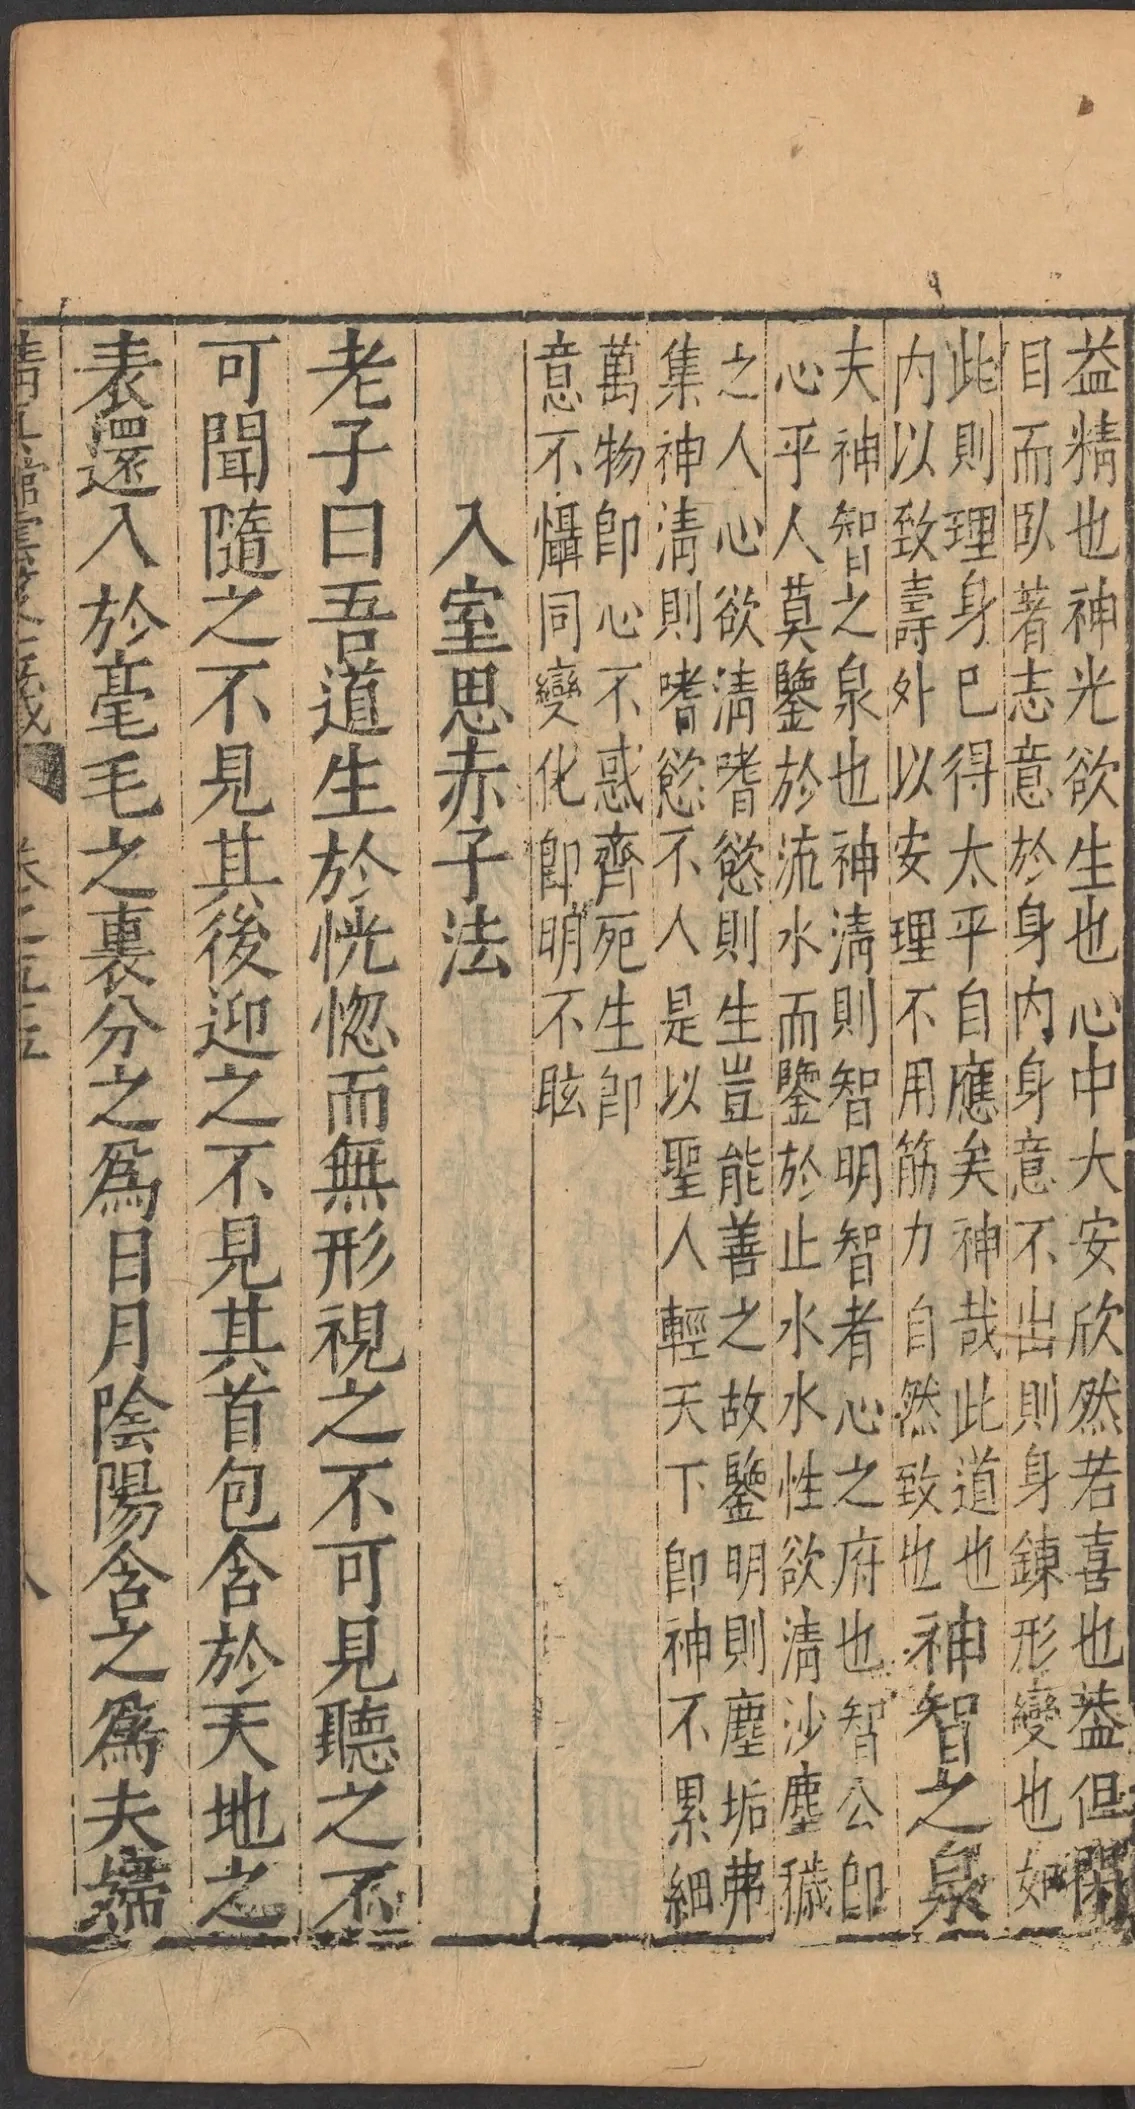 益精也神光欲生也心中大安欣然若喜也葢但閉
目而臥著志意於身內身意不出則身鍊形變也如
此則理身已得太平自應矣神哉此道也
內以致壽外以安理不用筋力自然致也
神智之泉
夫神智之泉也神清則智明智者心之府也智公即
心乎人莫鑒於流水而鑒於止水水性欲清沙塵穢
之人心欲清嗜慾則生豈能善之故鑒明則塵垢弗
集神清則嗜慾不人是以聖人輕天下即神不累細
萬物即心不惑齊死生即
意不懾同變化即明不眩
入室思赤子法
老子曰吾道生於恍惚而無形視之不可見聽之不
可聞隨之不見其後迎之不見其首包含於天地之
表還入於毫毛之裏分之爲日月陰陽含之爲夫